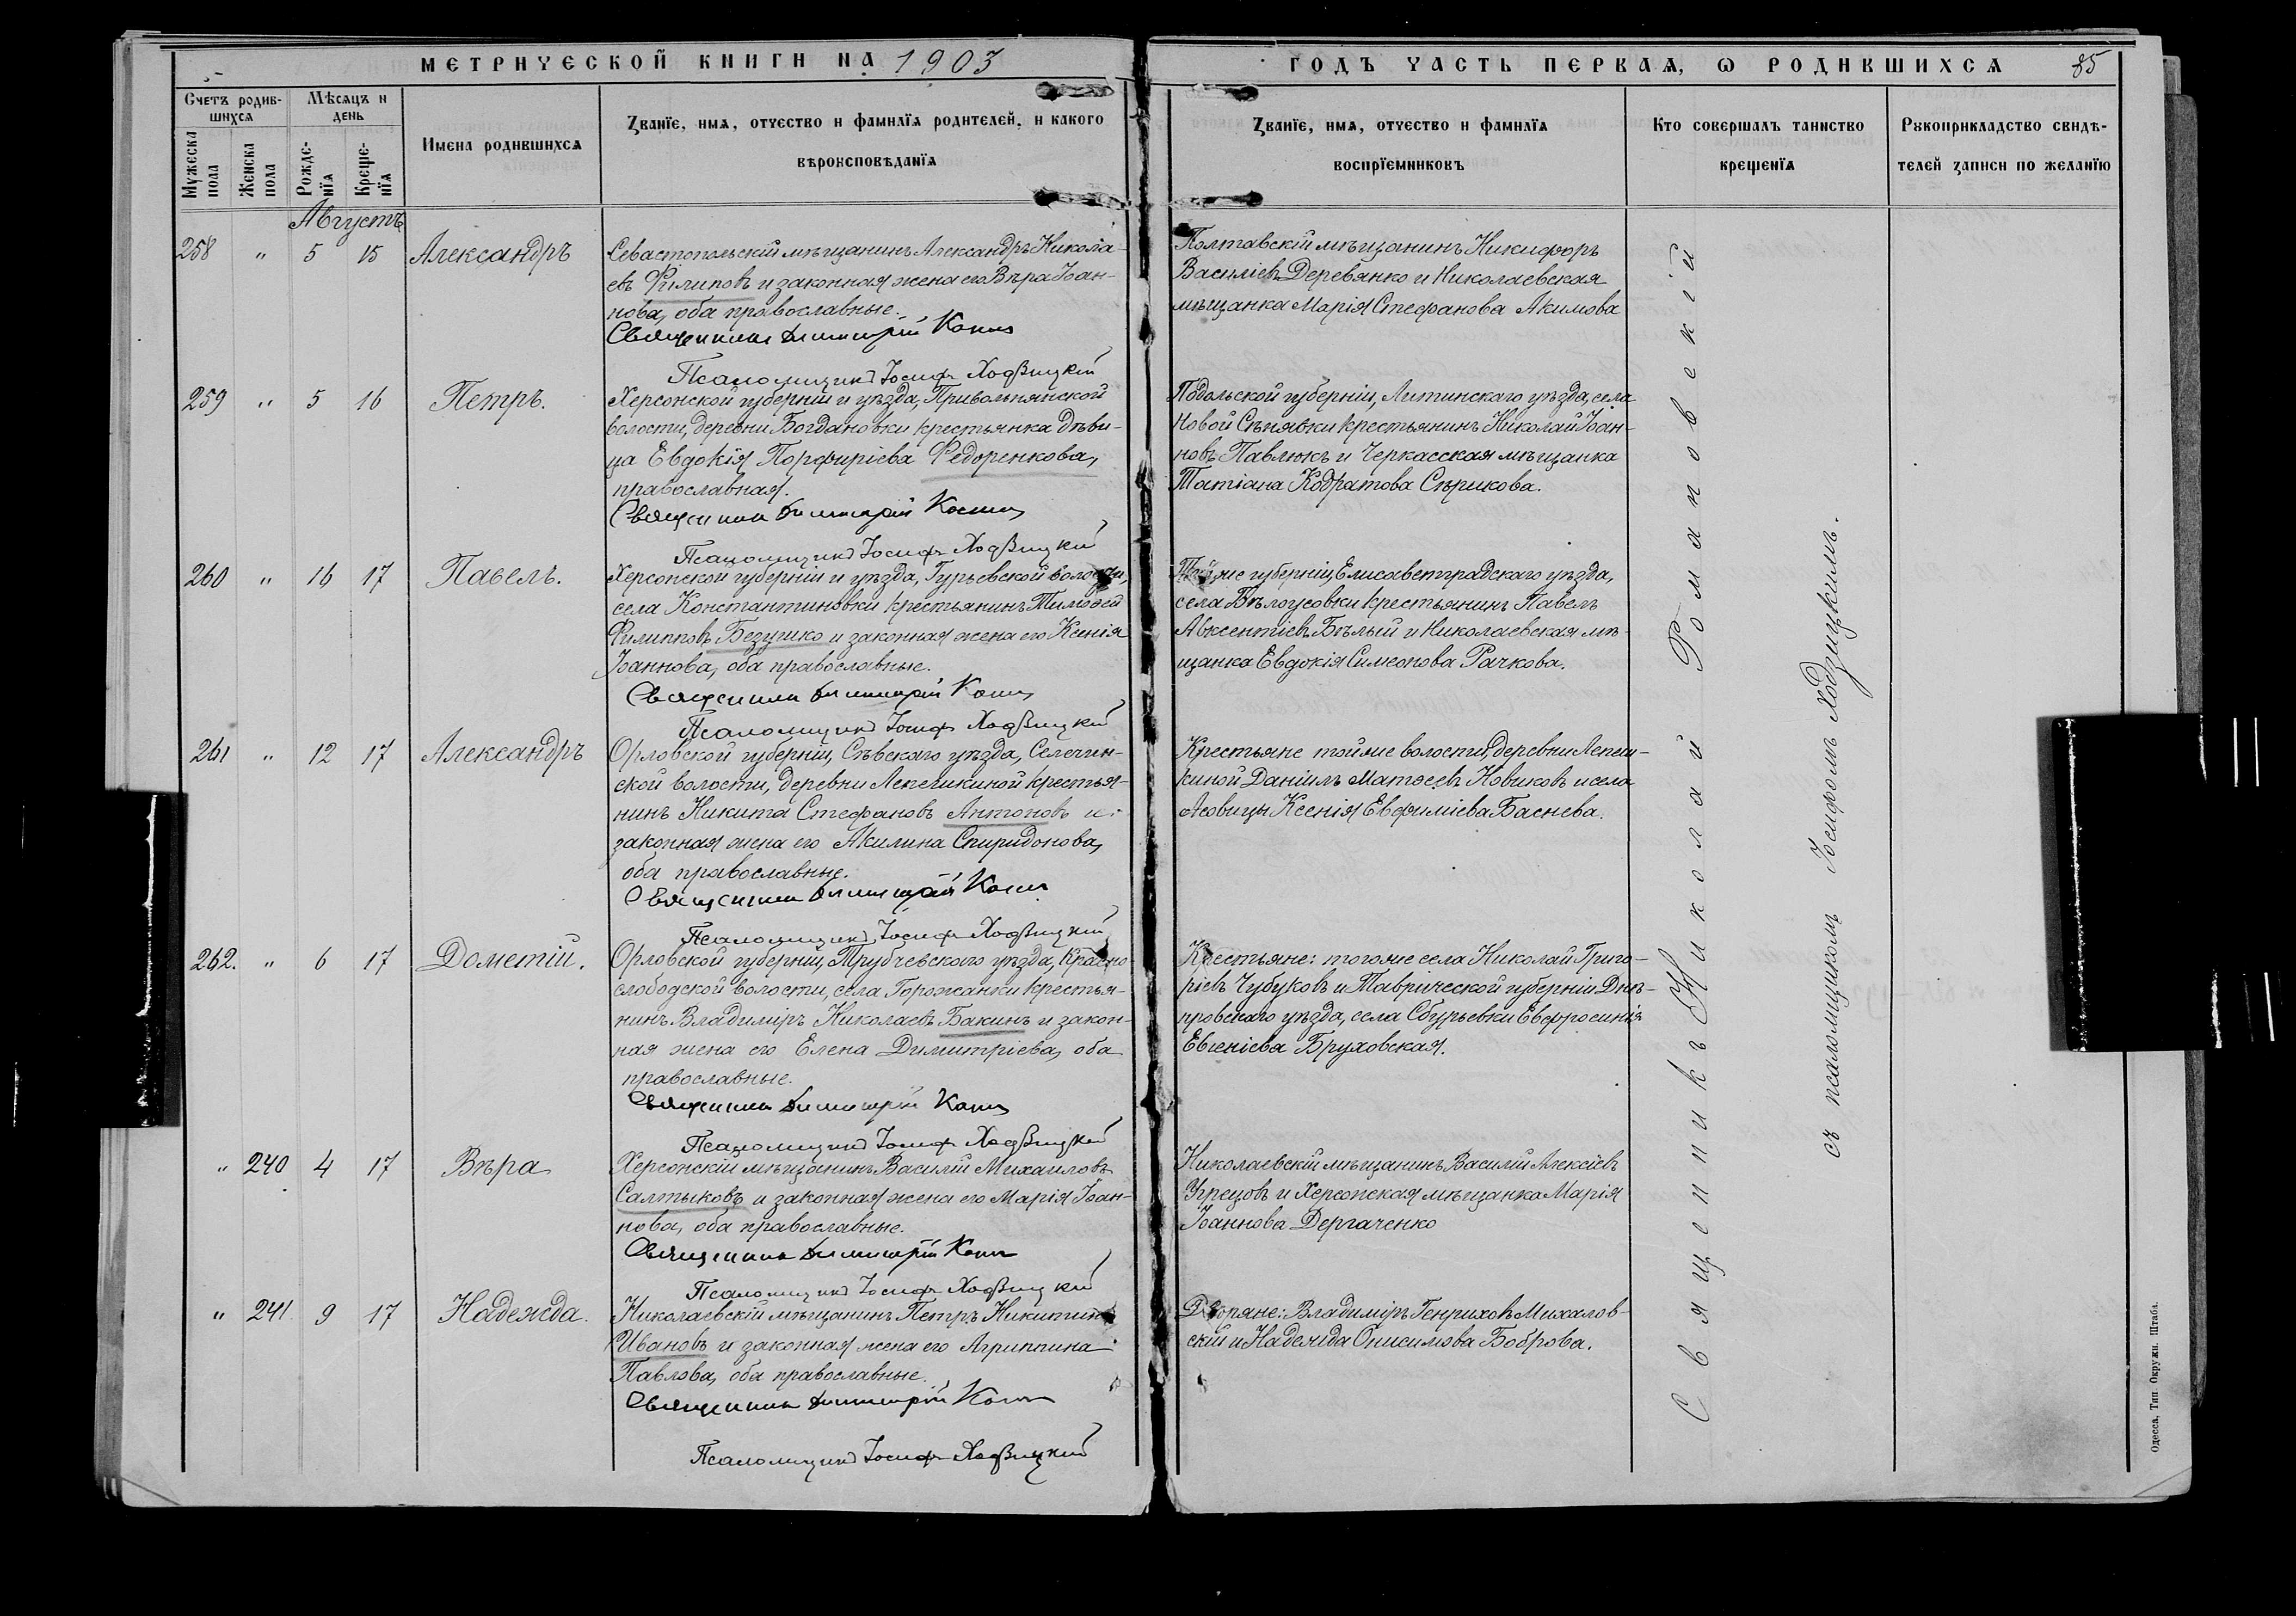 МЕТРИЧЕСКОЙ КНИГИ НА 1903
ГОДЪ ЧАСТЬ ПЕРВАЯ, Ѡ РОДИВШИХСЯ 85
Счетъ родив-
шихся
Мужеска
пола
Женска
пола
Мѣсяцъ и
день
Рожде-
нїя
Креще-
нїя
Имена родившихся
Званїе, имя, отчество и фамилїя родителей, и какого
вѣроисповѣданїя
Званїе, имя, отчество и фамилїя
воспрїемниковъ
Кто совершалъ таинство
крещенїя
Рукоприкладство свидѣ-
телей записи по желанїю
Августъ
258 " 5 15 Александръ
Севастопольскій мѣщанинъ Александръ Никола-
евъ Филиповъ и законная жена его Вѣра Іоан-
нова, оба православные.
Священникъ Димитрій
Псаломщикъ Іосифъ Ходзицкій
Полтавскій мѣщанинъ Никифоръ
Василіевъ Деревянко и Николаевская
мѣщанка Марія Стефанова Акимова
259 " 5 16 Петръ.
Херсонской губерніи и уѣзда, Привольнянской
волости, деревни Богдановки крестьянка дѣви-
ца Евдокія Порфиріева Федоренкова,
православная.
Священникъ Димитрій
Псаломщикъ Іосифъ Ходзицкій
Подольской губерніи, Литинскаго уѣзда, села
Новой Сѣнявки крестьянинъ Николай Іоан-
новъ Павлюкъ и Черкасская мѣщанка
Татіана Кодратова Сѣрикова.
260 " 16 17 Павелъ.
Херсонской губерніи и уѣзда, Гурьевской волости,
села Константиновки крестьянинъ Тимоѳей
Филипповъ Безушко и законная жена его Ксенія
Іоаннова, оба православные.
Священникъ Димитрій
Псаломщикъ Іосифъ Ходзицкій
Той же губерніи, Елисаветградскаго уѣзда,
села Бѣлоусовки крестьянинъ Павелъ
Авксентіевъ Бѣлый и Николаевская мѣ-
щанка Евдокія Симеонова Рачкова.
261 " 12 17 Александръ
Орловской губерніи, Сѣвскаго уѣзда, Селечин-
ской волости, деревни Лепешкиной крестья-
нинъ Никита Стефановъ Антоновъ и
законная жена его Акилина Спиридонова,
оба православные.
Священникъ Димитрій
Псаломщикъ Іосифъ Ходзицкій
Крестьяне той же волости, деревни Лепеш-
киной Даніилъ Матѳеевъ Новиковъ и села
Ксенія Евфиміева Баснева.
262. " 6 17 Дометій.
Орловской губерніи, Трубчевскаго уѣзда, Красно-
слободской волости, села Горожанки крестья-
нинъ Владиміръ Николаевъ Бакинъ и закон-
ная жена его Елена Димитріева, оба
православные.
Священникъ Димитрій
Псаломщикъ Іосифъ Ходзицкій
Крестьяне: того же села Николай Григо-
ріевъ Чубуковъ и Таврической губерніи Днѣ-
провскаго уѣзда, села Сбурьевки Евфросинія
Евгеніева Бруховская.
" 240 4 17 Вѣра
Херсонскій мѣщанинъ Василій Михаиловъ
Салтыковъ и законная жена его Марія Іоан-
нова, оба православные.
Священникъ Димитрій
Псаломщикъ Іосифъ Ходзицкій
Николаевскій мѣщанинъ Василій Алексіевъ
Угрецовъ и Херсонская мѣщанка Марія
Іоаннова Дергаченко
" 241 9 17 Надежда.
Николаевскій мѣщанинъ Петръ Никитинъ
Ивановъ и законная жена его Агриппина
Павлова, оба православные.
Священникъ Димитрій
Псаломщикъ Іосифъ Ходзицкій
Дворяне: Владиміръ Генриховъ Михалов-
скій и Надежда Онисимова Боброва.
Священникъ Николай Романовскій
съ псаломщикомъ Іосифомъ Ходзицкимъ.
Одесса, Тип. Окружн. Штаба.